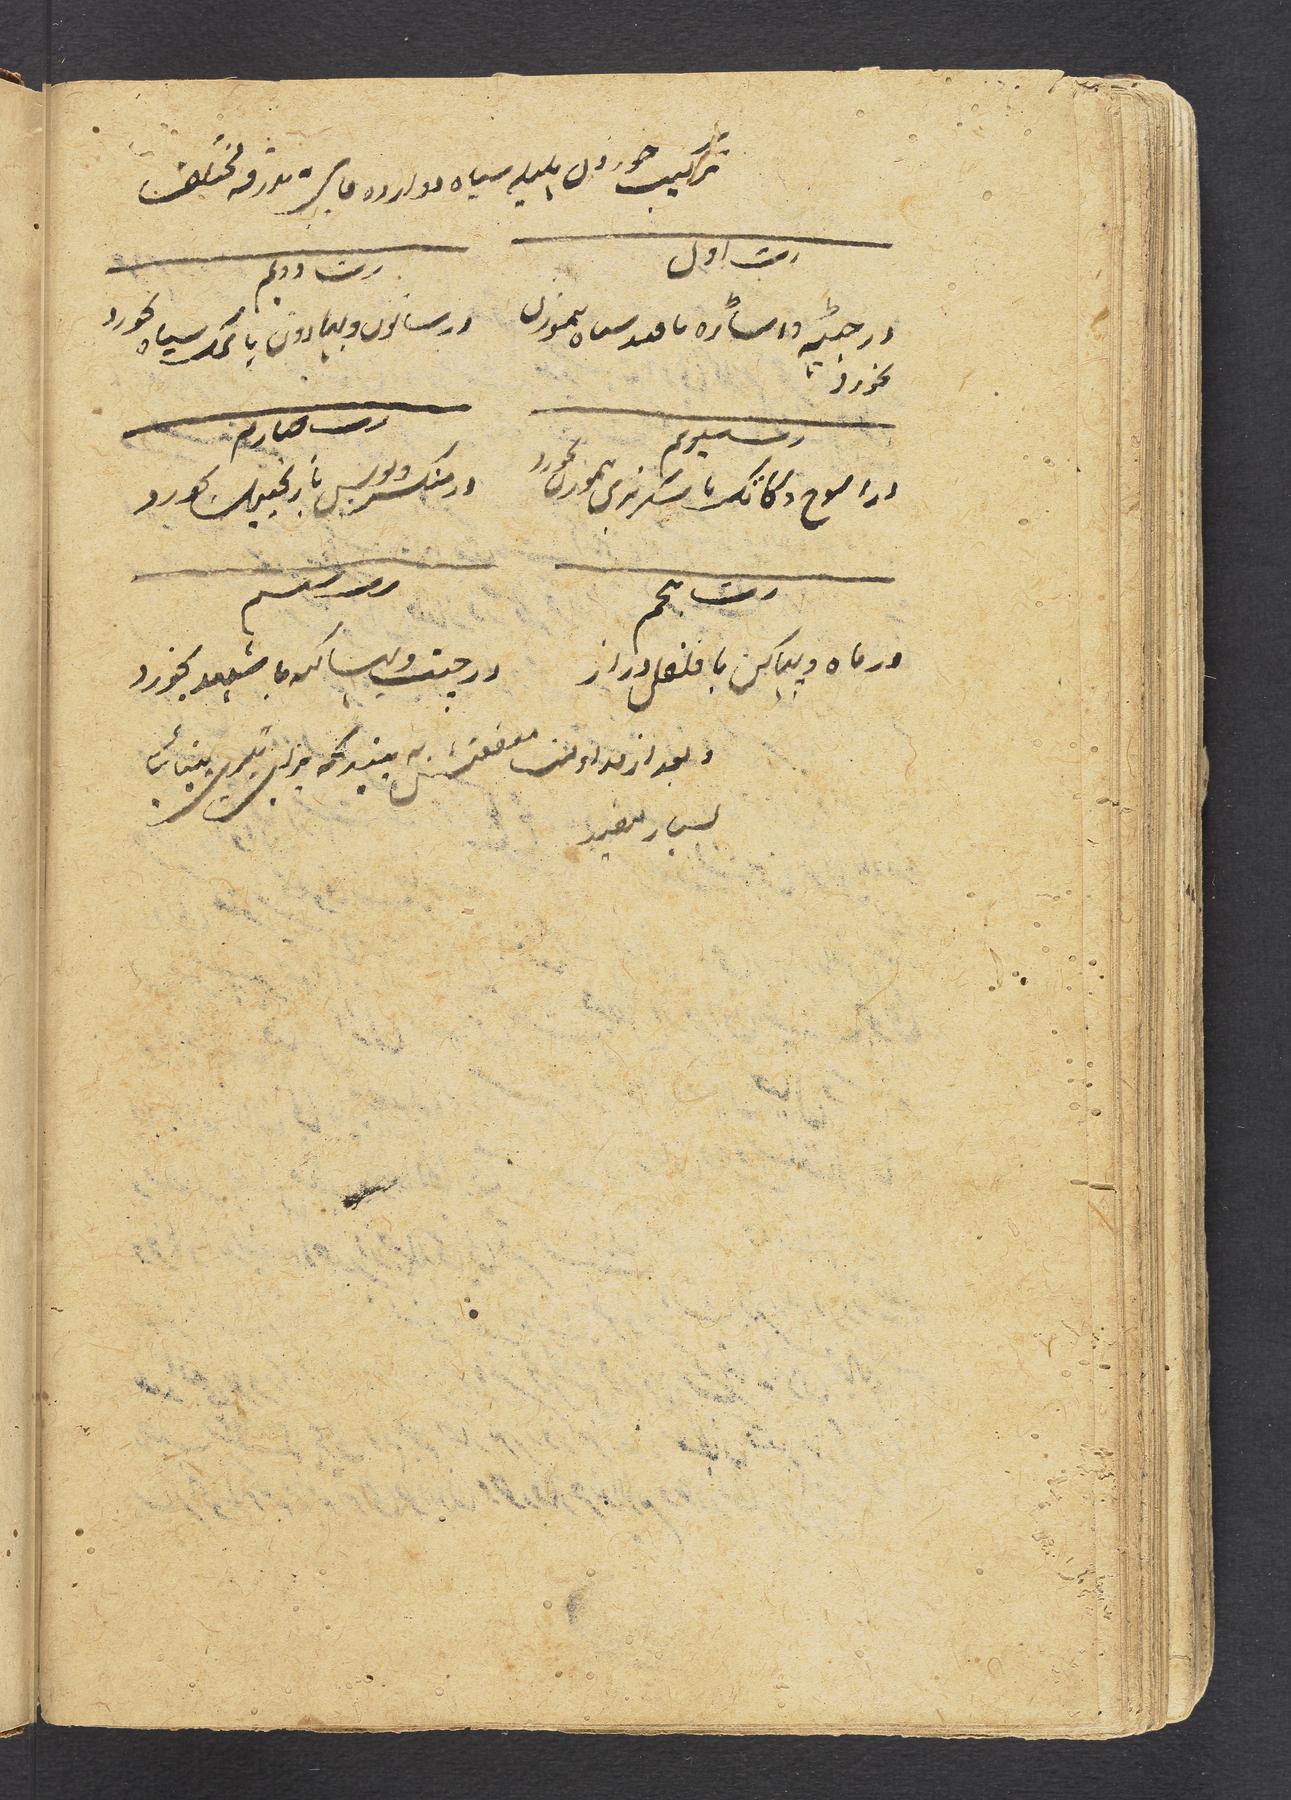 ترکیب خوردن هلیله سیاه دوازده ماه بدرقه مختلف
رت اول
در جیٹه و اساڑه با قند سیاه هموزن
بخورد
رت دویم
در سانون و بهادون با نمک سیاه بخورد
رت سیوم
در اسوج و کاتک با شکر تری هموزن بخورد
رت چهارم
در منگسر و پوس با زنجبیل بخورد
رت پنجم
در ماه و پهاکن با فلفل دراز
رت ششم
در چیت و بیساکه با شهد بخورد
و بعد از مداومت منفعتش به بیند که برای بینائی
بسیار مفید